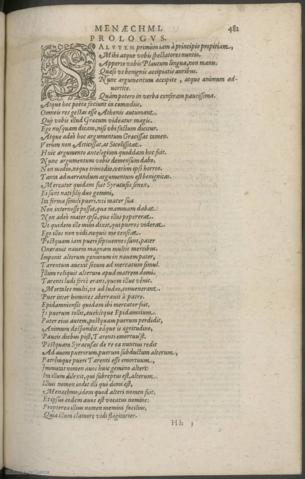 MENÆCHMI. 481
PROLOGUS.
SALVTEM primùm iam à principio propitiam
Mihi atque vobis spectatores nuntio.
Apporto vobis Plautum lingua, non manu.
Quæso vt benignis accipiatis auribus.
Nunc argumentum accipite, atque animum ad-
uortite.
Quàm potero in verba conferam paucissima.
Atque hoc poetæ faciunt in comœdiis,
Omneis res gestas esse Athenis autumant.
Quo vobis illud Græcum videatur magis.
Ego nusquam dicam, nisi vbi factum dicitur.
Atque adeò hoc argumentum Græcissat tamen
Verum non Atticissat, at Sicelissitat.
Huic argumento antelogium quoddam hoc fuit.
Nunc argumentum vobis demensum dabo,
Non modio, neque trimodio, verùm ipso horreo.
Tanta ad narrandum argumentum est benignitas.
Mercator quidam fuit Syracusis senex,
Ei sunt nati filij duo gemini,
Ita forma simili pueri, vti mater sua
Non internosse posset, quæ mammam dabat.
Non adeò mater ipsa, quæ illos pepererat.
Vt quidem ille mihi dixit, qui pueros viderat.
Ego illos non vidi, ne quis me censeat.
Postquam iam pueri septuennes sunt, pater
Onerauit nauem magnam multis mercibus.
Imponit alterum geminum in nauem pater,
Tarentum auexit secum ad mercatum simul.
Illum reliquit alterum apud matrem domi.
Tarenti ludi fortè erant, quum illuc venit.
Mortales multi, vt ad ludos, conuenerant.
Puer inter homines aberrauit à patre.
Epidamniensis quidam ibi mercator fuit,
Is puerum tollit, auehitque Epidamnium.
Pater eius autem, postquam puerum perdidit,
Animum despondit: eáque is ægritudine,
Paucis diebus pòst, Tarenti emortuu'st.
Postquam Syracusas de ea re nuntius redit
Ad auum puerorum, puerum subductum alterum,
Patremque pueri Tarenti esse emortuum,
Immutat nomen auus huic gemino alteri:
Ita illum dilexit, qui subreptus est, alterum.
Illius nomen indit illi qui domi est,
Menæchmo, idem quod alteri nomen fuit.
Et ipsus eodem auus est vocatus nomine:
Propterea illius nomen memini faciliùs,
Quia illum clamore vidi flagitarier.
Hh 1